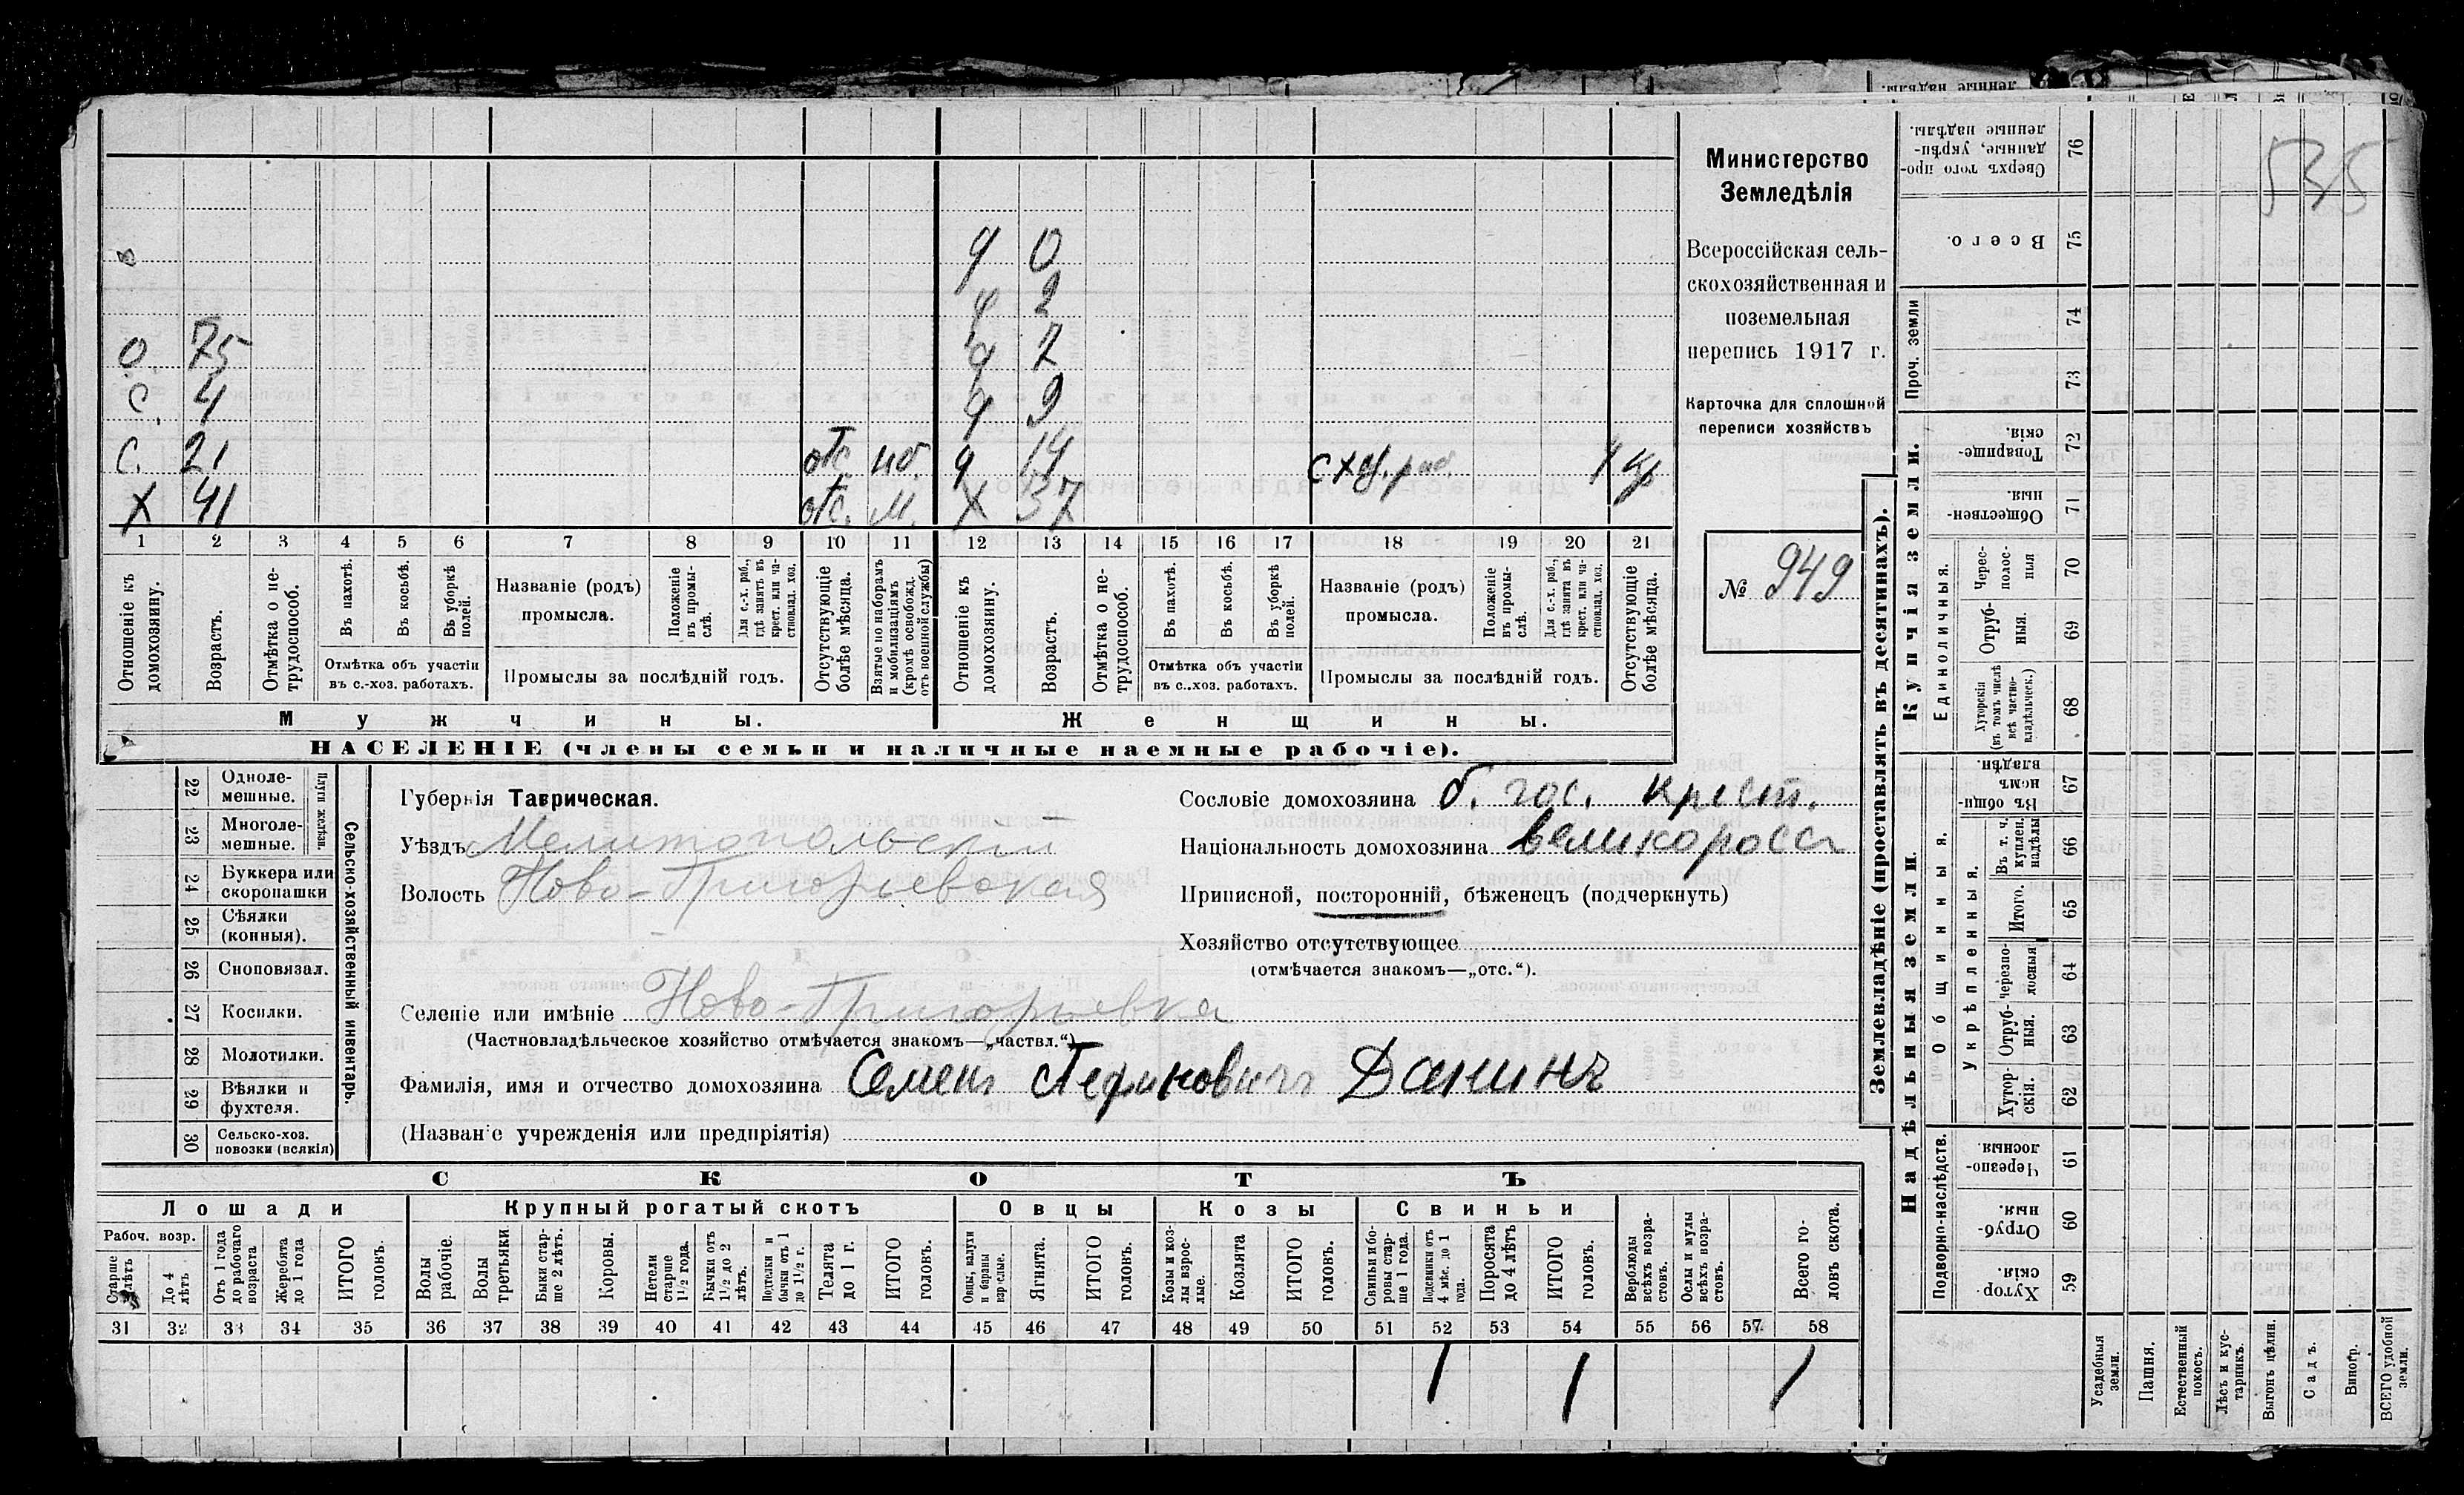 535
О 75
С. 4
С. 21 отс. нб
Х 41 отс. м.
д 0
д 2
д 7
д 9
д 14
Х 37
1 2 3 4 5 6 7 8 9 10 11 12 13 14 15 16 17 18 19 20 21
Отношеніе къ домохозяину.
Возрастъ.
Отмѣтка о нетрудоспособ.
Въ пахотѣ.
Въ косьбѣ.
Въ уборкѣ полей.
Отмѣтка объ участіи
въ с.-хоз. работахъ.
Названіе (родъ)
промысла.
Положеніе въ промыслѣ.
Для с.-х. раб., гдѣ занятъ въ крест. или частновлад. хоз.
Промыслы за послѣдній годъ.
Отсутствующіе болѣе мѣсяца.
Взятые по наборамъ и мобилизаціямъ (кромѣ освобожд. отъ военной службы)
Отношеніе къ домохозяину.
Возрастъ.
Отмѣтка о нетрудоспособ.
Въ пахотѣ.
Въ косьбѣ.
Въ уборкѣ полей.
Отмѣтка объ участіи
въ с.-хоз. работахъ.
Названіе (родъ)
промысла.
Положеніе въ промыслѣ.
Для с.-х. раб., гдѣ занята въ крест. или частновлад. хоз.
Промыслы за послѣдній годъ.
Отсутствующіе болѣе мѣсяца.
Мужчины. Женщины.
НАСЕЛЕНІЕ (члены семьи и наличные наемные рабочіе).
Министерство
Земледѣлія
Всероссійская сель-
скохозяйственная и
поземельная
перепись 1917 г.
Карточка для сплошной
переписи хозяйствъ
№ 949
22 Одноле-
мешные.
23 Многоле-
мешные.
Плуги желѣзн.
24 Буккера или
скоропашки
25 Сѣялки
(конныя).
26 Сноповязал.
27 Косилки.
28 Молотилки.
29 Вѣялки и
фухтеля.
30 Сельско-хоз.
повозки (всякія)
Сельско-хозяйственный инвентарь.
Губернія Таврическая.
Уѣздъ Мелитопольскій
Волость Ново-Григорьевская
Селеніе или имѣніе Ново-Григорьевка
(Частновладѣльческое хозяйство отмѣчается знакомъ—„частвл.“)
Фамилія, имя и отчество домохозяина Семенъ Данинъ
(Названіе учрежденія или предпріятія)
Сословіе домохозяина б. гос. крест.
Національность домохозяина великороссъ
Приписной, посторонній, бѣженецъ (подчеркнуть)
Хозяйство отсутствующее
(отмѣчается знакомъ—„отс.“).
СКОТЪ
Лошади Крупный рогатый скотъ Овцы Козы Свиньи
Рабоч. возр.
Старше 4 лѣтъ
До 4 лѣтъ
Отъ 1 года до рабочаго возраста
Жеребята до 1 года
ИТОГО головъ.
Волы рабочіе.
Волы третьяки
Быки старше 2 лѣтъ.
Коровы.
Нетели старше 1½ года.
Бычки отъ 1½ до 2 лѣтъ.
Подтелки и бычки отъ 1 до 1½ г.
Телята до 1 г.
ИТОГО головъ.
Овцы, валухи и бараны взрослые.
Ягнята.
ИТОГО головъ.
Козы и козлы взрослые.
Козлята
ИТОГО головъ.
Свиньи и боровы старше 1 года.
Подсвинки отъ 4 мѣс. до 1 года.
Поросята до 4 лѣтъ
ИТОГО головъ.
Верблюды всѣхъ возрастовъ.
Ослы и мулы всѣхъ возрастовъ.
Всего головъ скота.
31 32 33 34 35 36 37 38 39 40 41 42 43 44 45 46 47 48 49 50 51 52 53 54 55 56 57 58
1 1 1
Землевладѣніе (проставлять въ десятинахъ).
Купчія земли.
Надѣльныя земли.
Сверхъ того проданные, укрѣпленные надѣлы. 76
Всего. 75
Проч. земли 74
73
Товарищескія. 72
Общественныя. 71
Единоличныя.
Черес-полос-ныя 70
Отруб-ныя. 69
Хуторскія (въ томъ числѣ всѣ частновладѣльческ.) 68
Общинныя.
Въ общинномъ владѣн. 67
Укрѣпленныя.
Въ т. ч. куплен. надѣлы 66
Итого. 65
Черезполосныя 64
Отрубныя. 63
Хуторскія. 62
Подворно-наслѣдств.
Черезполосныя 61
Отрубныя. 60
Хуторскія. 59
Усадебныя земли.
Пашня.
Естественный покосъ.
Лѣсъ и кустарникъ.
Выгонъ цѣлин.
Садъ.
Виногр.
ВСЕГО удобной земли.